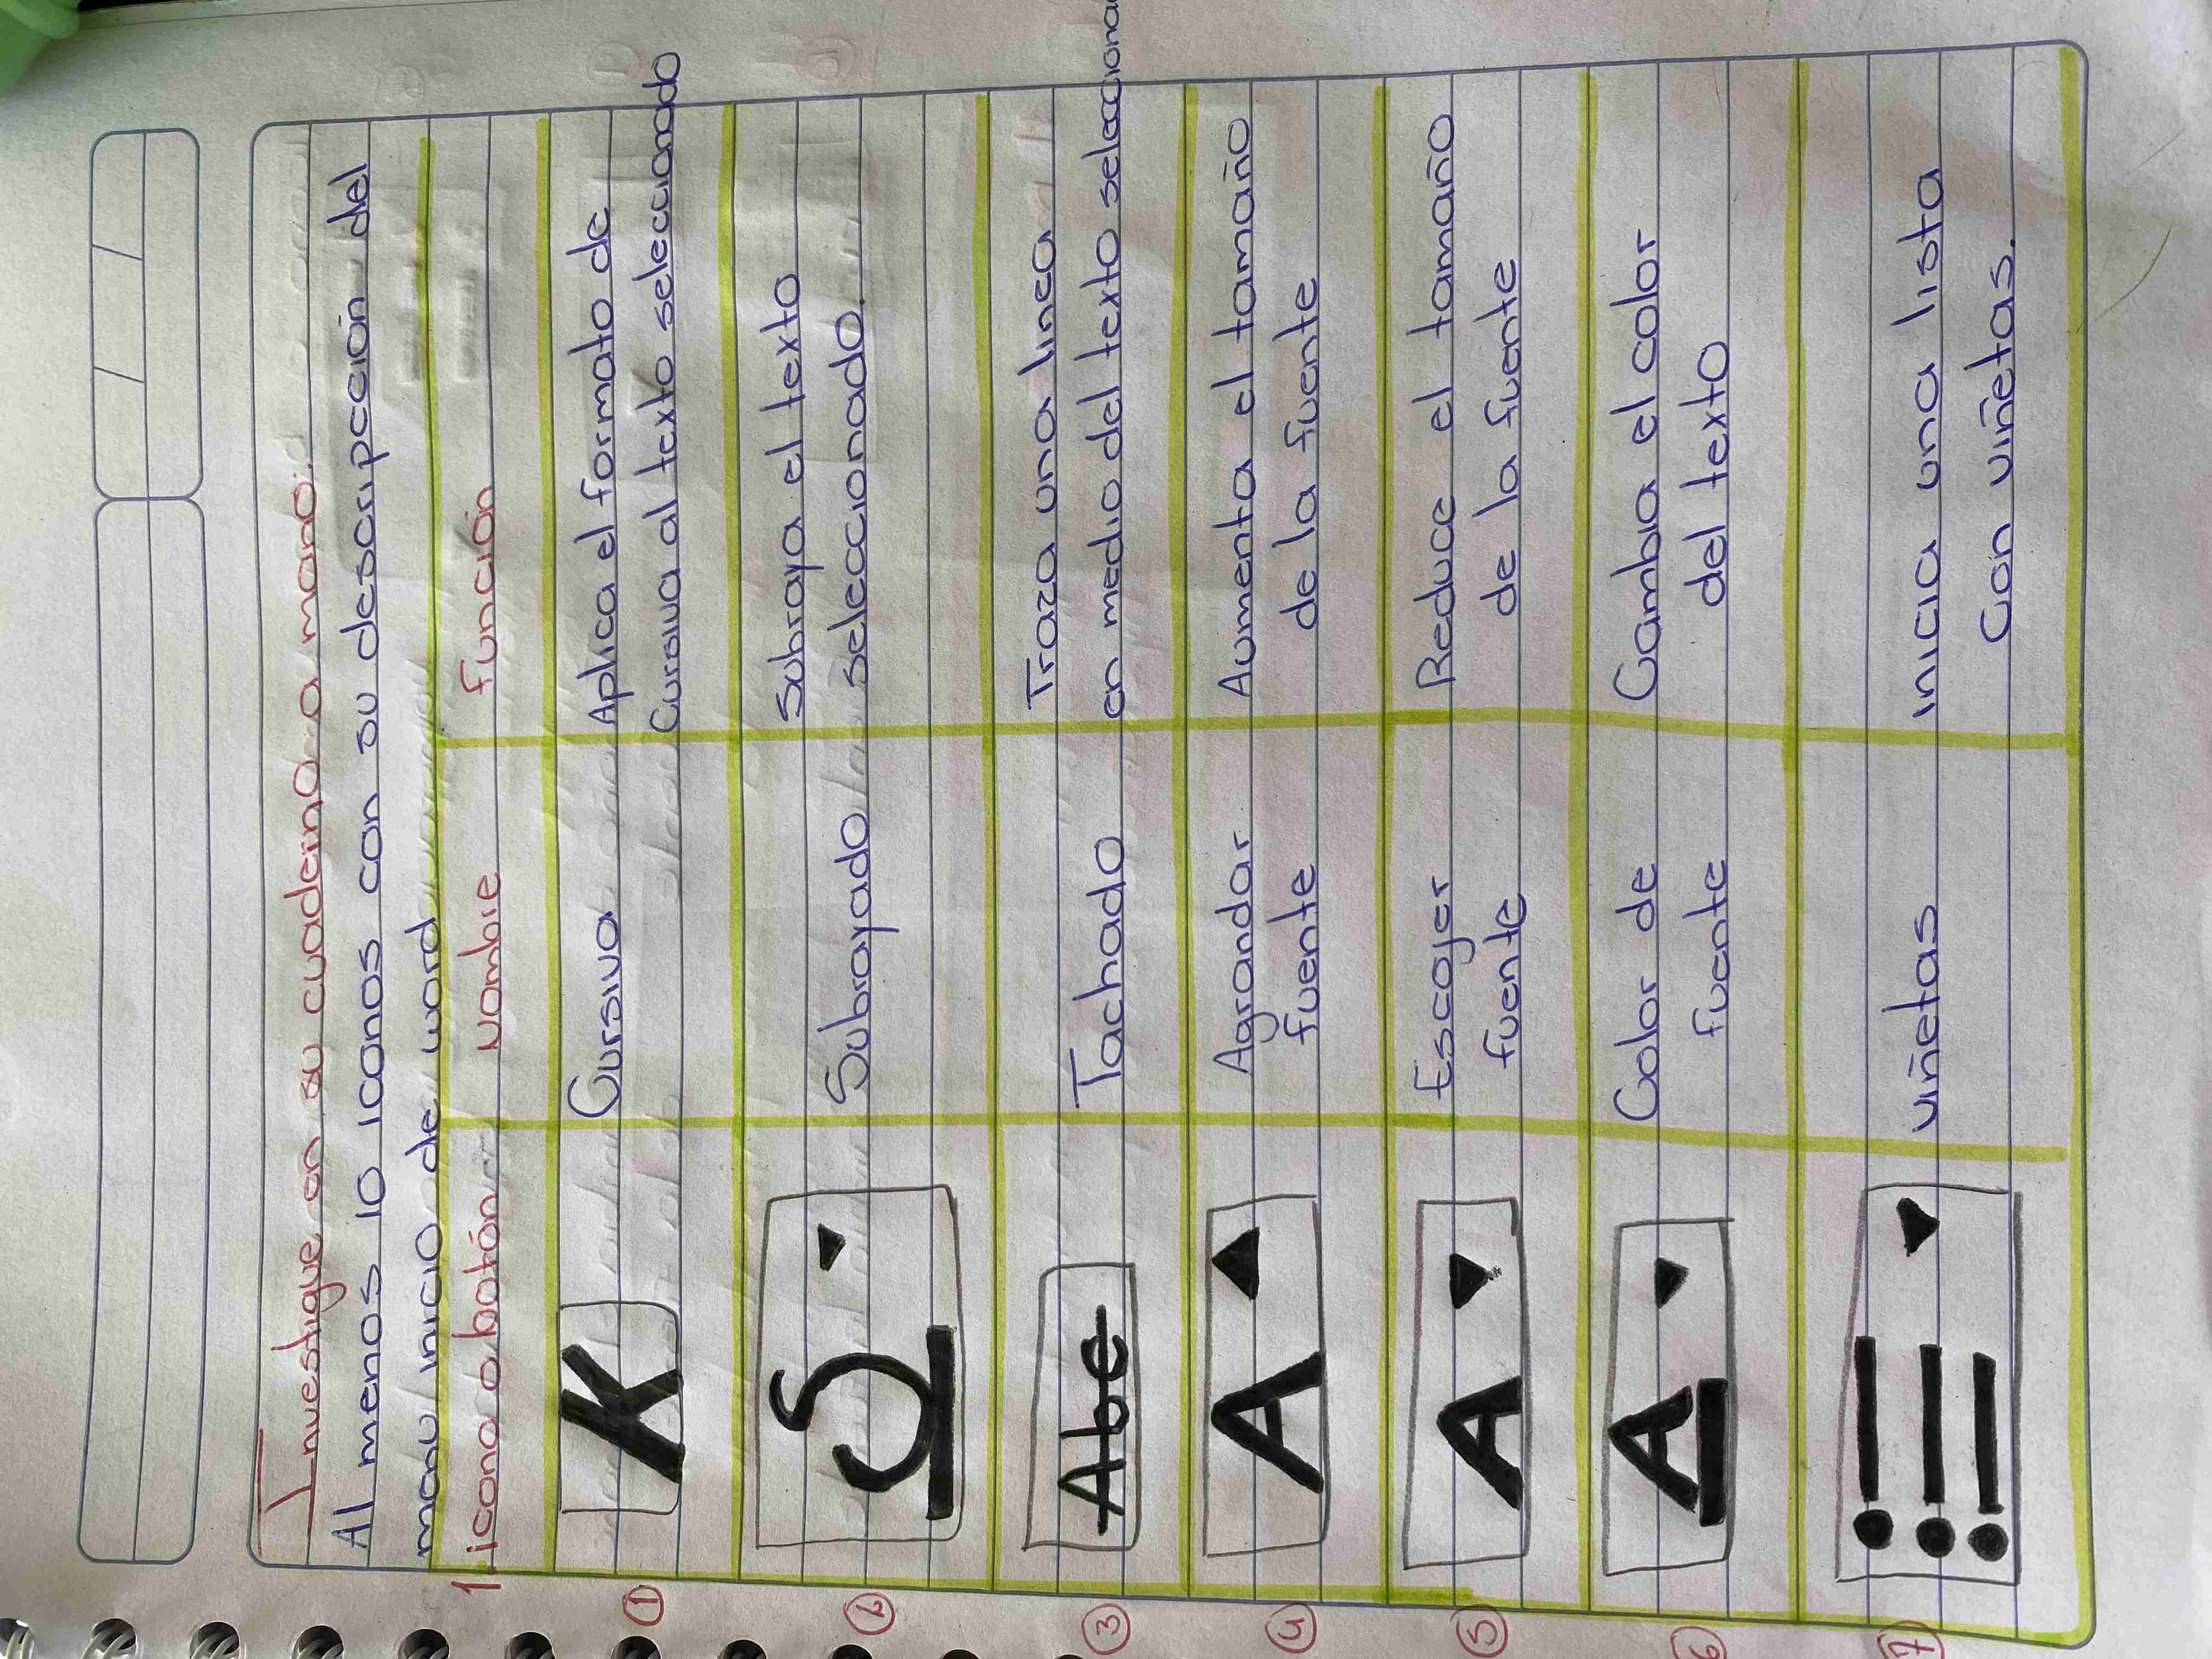 Investigue en su cuaderno a mano:
Al menos 10 iconos con su descripcción del
menú inicio de word
1. icono o botón nombre función
① K Cursiva Aplica el formato de
cursiva al texto seleccionado
② S Subrayado Subraya el texto
seleccionado.
③ Abc Tachado Traza una linea
en medio del texto seleccionad
④ A Agrandar Aumenta el tamaño
fuente de la fuente
⑤ A Escojer Reduce el tamaño
fuente de la fuente
⑥ A Color de Cambia el color
fuente del texto
⑦ viñetas inicia una lista
con viñetas.